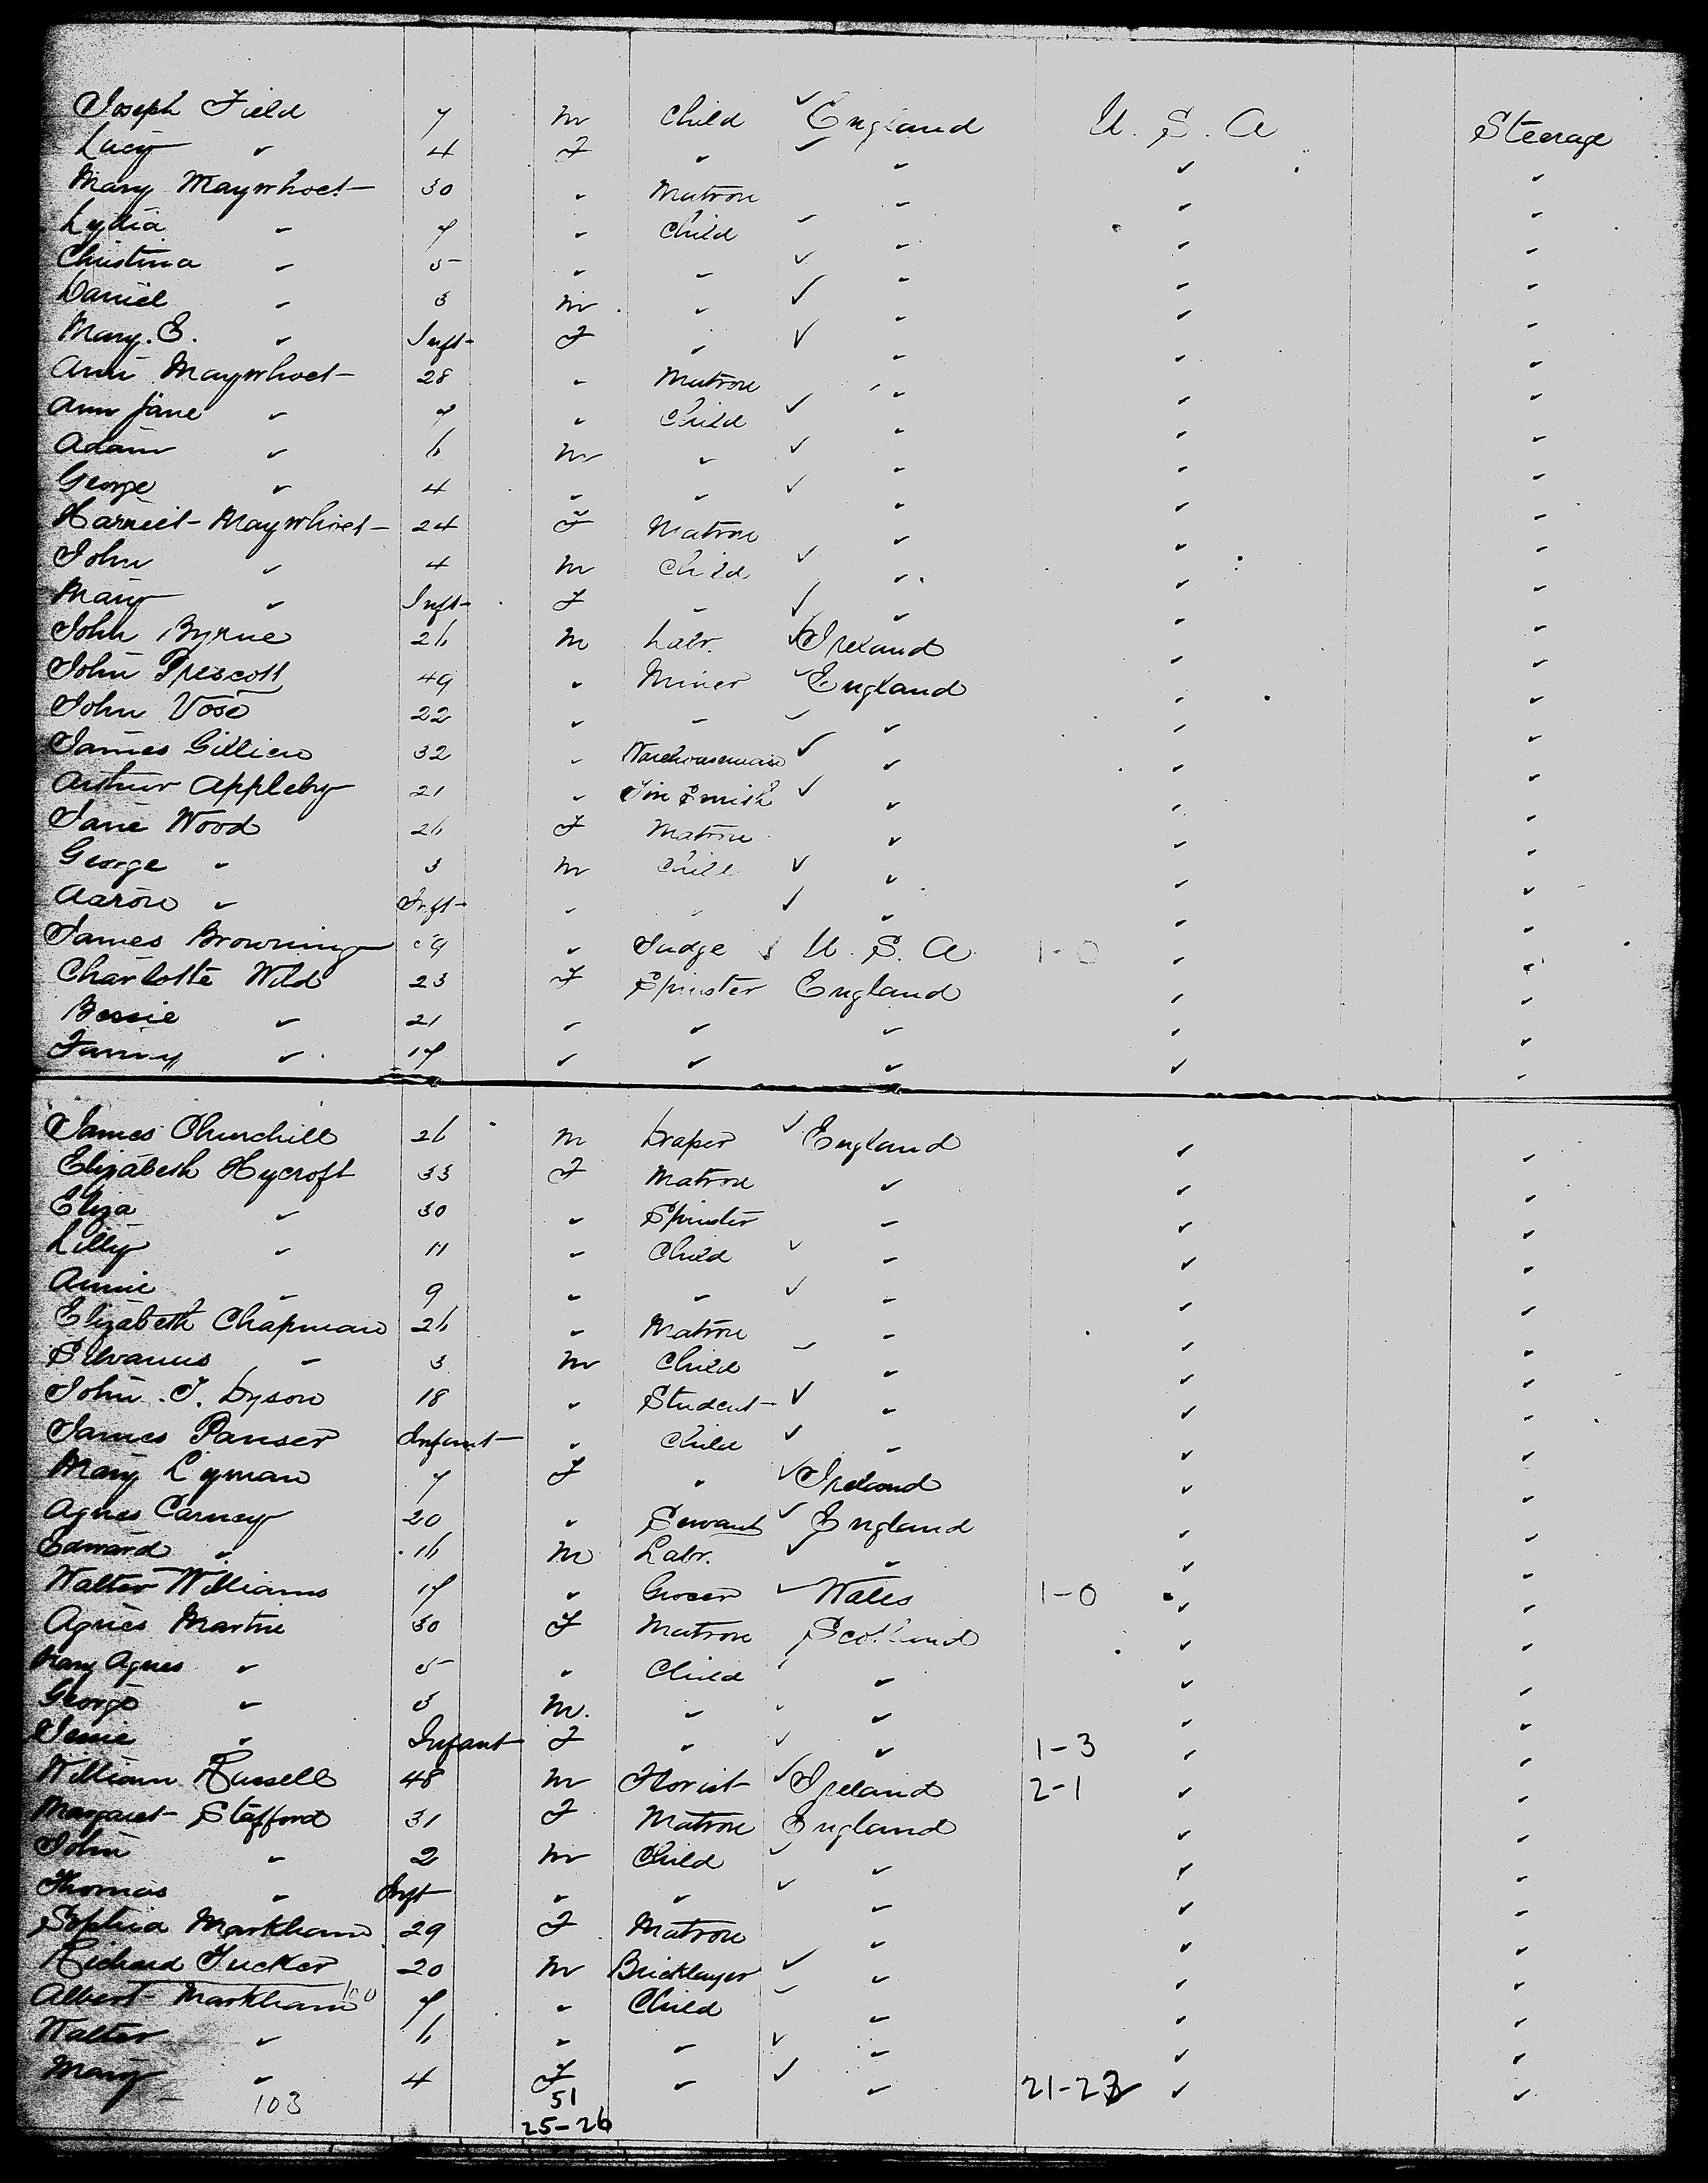 Joseph Field 7 m Child ✓ England U. S. A Steerage
Lucy " 4 F " ✓ " " "
Mary Maywhoet 30 " Matron " " "
Lydia " 7 " Child ✓ " " "
Christina " 5 " " ✓ " " "
Daniel " 3 m " ✓ " " "
Mary. E. " Inft F " ✓ " " "
Ann Maywhoet 28 " Matron " " "
Ann Jane " 7 " Child ✓ " " "
Adam " 6 m " ✓ " " "
George " 4 " " ✓ " " "
Harriet Maywhoet 24 F Matron " " "
John " 4 m Child ✓ " " "
Mary " Inft F " ✓ " " "
John Byrne 26 m Labr. ✓ Ireland " "
John Prescott 49 " Miner ✓ England " "
John Vose 22 " " ✓ " " "
James Gillien 32 " Warehouseman ✓ " " "
Arthur Appleby 21 " Tin Smith ✓ " " "
Jane Wood 26 F Matron " " "
George " 3 m Child ✓ " " "
Aaron " Inft " " ✓ " " "
James Browning 59 " Judge ✓ U. S. A 1-0 " "
Charlotte Wild 23 F Spinster England " "
Bessie " 21 " " " " "
Fanny " 17 " " " " "
James Churchill 26 m Draper ✓ England " "
Elizabeth Hycroft 33 F Matron " " "
Eliza " 30 " Spinster " " "
Lilly " 11 " Child ✓ " " "
Annie " 9 " " ✓ " " "
Elizabeth Chapman 26 " Matron " " "
Silvanus " 3 m Child ✓ " " "
John. T. Dyson 18 " Student ✓ " " "
James Panser Infant " Child ✓ " " "
Mary Lyman 7 F " ✓ Ireland " "
Agnes Carney 20 " Servant ✓ England " "
Edward " 16 m Labr. ✓ " " "
Walter Williams 17 " Grocer ✓ Wales 1-0 " "
Agnes Martin 30 F Matron Scotland " "
Mary Agnes " 5 " Child ✓ " " "
George " 3 m. " ✓ " " "
Jenie " Infant F " ✓ " 1-3 " "
William Russell 48 m Florist ✓ Ireland 2-1 " "
Margaret Stafford 31 F Matron England " "
John " 2 m Child ✓ " " "
Thomas " Inft " " ✓ " " "
Sophia Markham 29 F Matron " " "
Richard Tucker 20 m Bricklayer ✓ " " "
Albert Markham 7 " Child ✓ " " "
Walter " 6 " " ✓ " " "
Mary " 4 F " ✓ " 21-23 " "
103 51
25-26